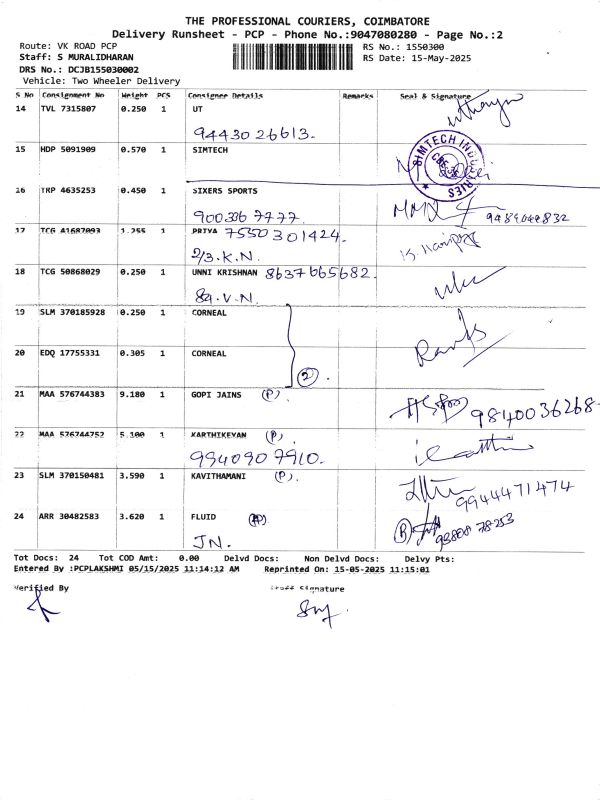 THE PROFESSIONAL COURIERS, COIMBATORE
Delivery Runsheet - PCP - Phone No.:9047080280 - Page No.:2
Route: VK ROAD PCP RS No.: 1550300
Staff: S MURALIDHARAN RS Date: 15-May-2025
DRS No.: DCJB155030002
Vehicle: Two Wheeler Delivery
S No Consignment No Weight PCS Consignee Details Remarks Seal & Signature
14 TVL 7315807 0.250 1 UT
9443026613.
15 HDP 5091909 0.570 1 SIMTECH
SIMTECH INDUSTRIES
CBE
16 TRP 4635253 0.450 1 SIXERS SPORTS
9003367777. 9489044832
17 TCG A1687093 1.255 1 PRIYA 7550301424.
2/3. K.N.
18 TCG 50868029 0.250 1 UNNI KRISHNAN 8637665682.
89. V.N.
19 SLM 370185928 0.250 1 CORNEAL
20 EDQ 17755331 0.305 1 CORNEAL
2
21 MAA 576744383 9.180 1 GOPI JAINS (P). 9840036268
22 MAA 576744752 5.100 1 KARTHIKEYAN (P)
9940907910.
23 SLM 370150481 3.590 1 KAVITHAMANI (P). 9944471474
24 ARR 30482583 3.620 1 FLUID (P).
JN.
Tot Docs: 24 Tot COD Amt: 0.00 Delvd Docs: Non Delvd Docs: Delvy Pts:
Entered By :PCPLAKSHMI 05/15/2025 11:14:12 AM Reprinted On: 15-05-2025 11:15:01
Verified By Staff Signature